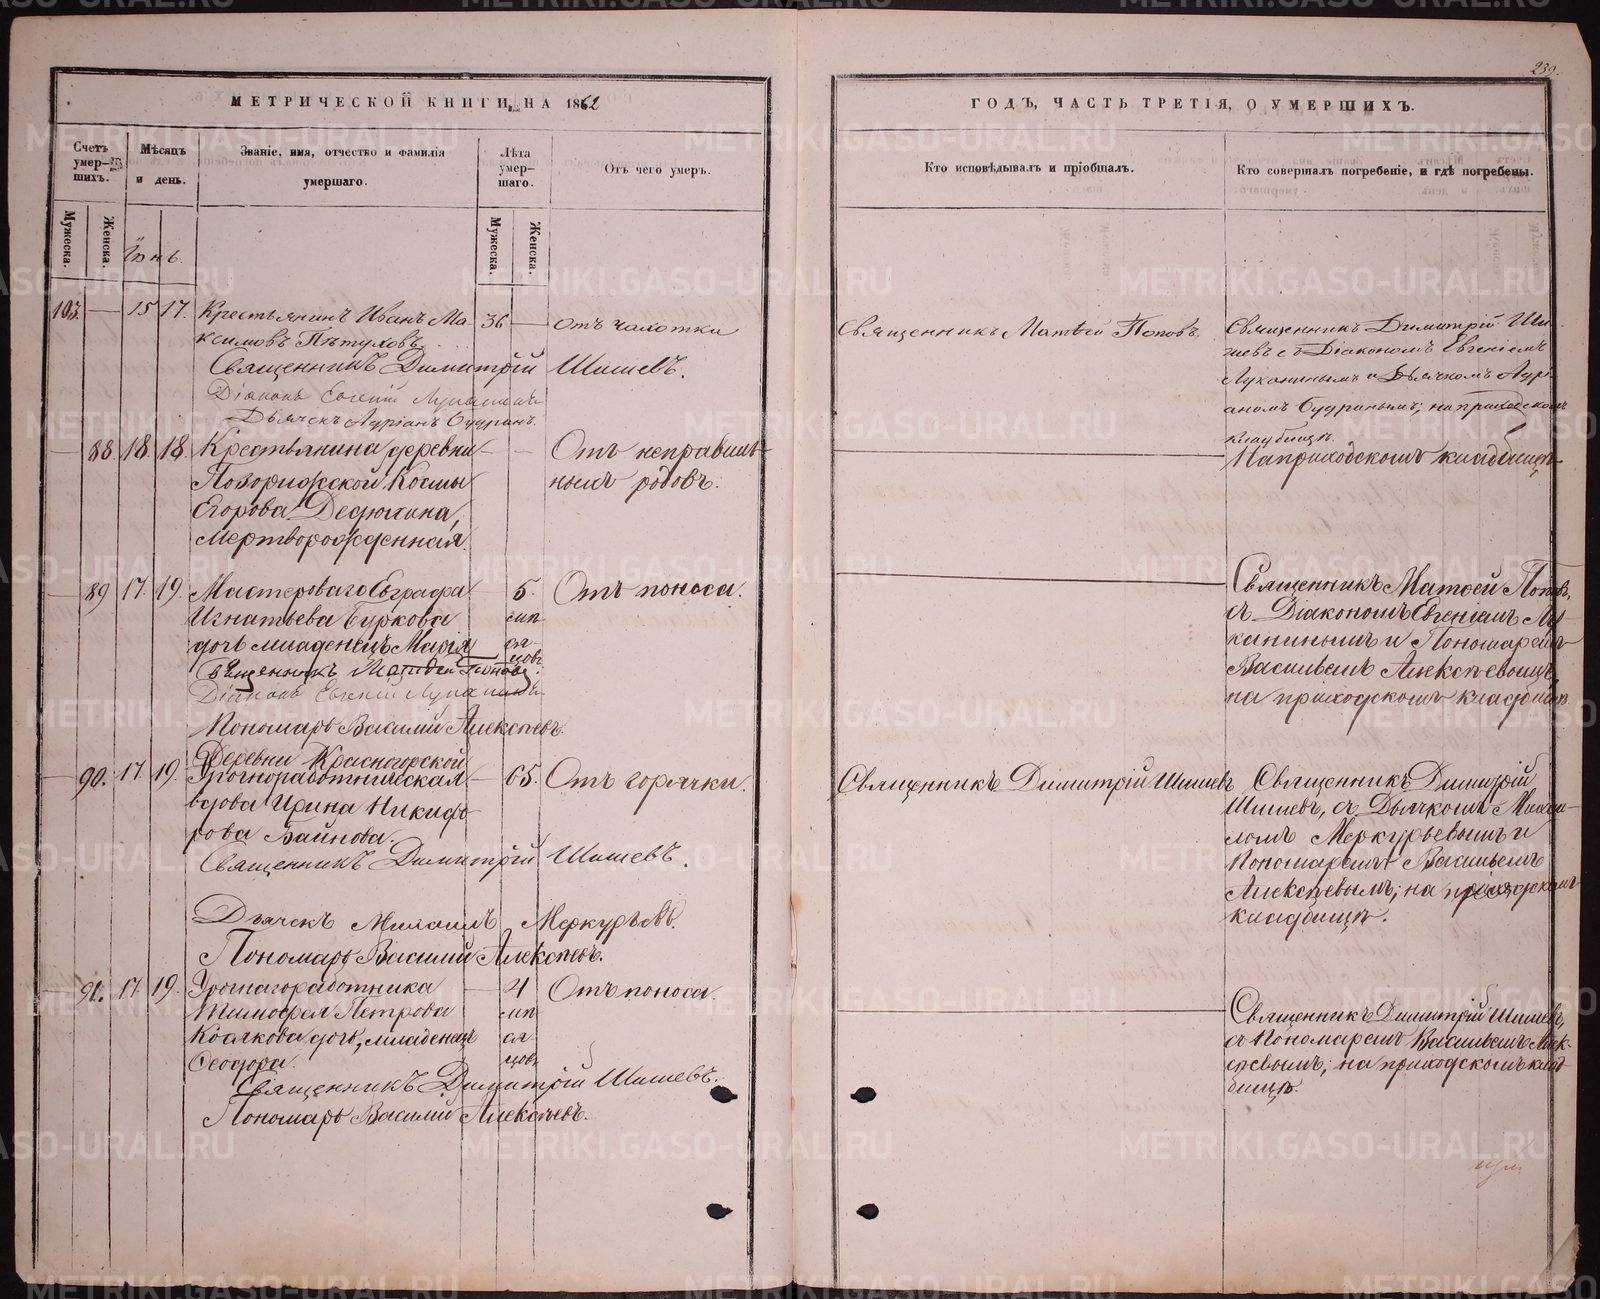 МЕТРИЧЕСКОЙ КНИГИ, НА 1862
Счетъ умер-шихъ.
Мѣсяцъ и день.
Званіе, имя, отчество и фамилія умершаго.
Лѣта умер-шаго.
Отъ чего умеръ.
Мужеска.
Женска.
Мужеска.
Женска.
Іюнь.
103. — 15 17. Крестьянинъ Иванъ Ма 36 — отъ чахотки
ксимовъ Пѣтуховъ.
Священникъ Димитрій Шишевъ.
Діаконъ Евгеній Луканинъ
Дьячекъ
— 88. 18. 18. Крестьянина деревни — — Отъ неправиль
Косьмы ныхъ родовъ.
Егорова Дедюхина,
Мертворожденная.
— 89 17. 19. Мастероваго Евграфа — 5. Отъ поноса.
Игнатьева Буркова
дочь младенецъ Марія
Священникъ Матѳей Поповъ.
Діаконъ Евгеній Луканинъ
Пономарь Василій Алексѣевъ.
Деревни Красногорской
— 90. 17. 19. Урочноработническая — 65. Отъ горячки.
вдова Ирина Никифо
рова
Священникъ Димитрій Шишевъ.
Дьячекъ Михаилъ Меркурьевъ.
Пономарь Василій Алексѣевъ.
— 91. 17 19. Урочнагоработника — 4 Отъ поноса.
Тимофея Петрова
дочь, младенецъ
Ѳеодора.
Священникъ Димитрій Шишевъ.
Пономарь Василій Алексѣевъ.
239.
ГОДЪ, ЧАСТЬ ТРЕТІЯ, О УМЕРШИХЪ.
Кто исповѣдывалъ и пріобщалъ.
Кто совершалъ погребеніе, и гдѣ погребены.
Священникъ Матѳей Поповъ.
Священникъ Димитрій Ши
шевъ съ Діакономъ Евгеніемъ
Луканинымъ и Дьячкомъ
на приходскомъ
кладбищѣ.
На приходскомъ кладбищѣ.
Священникъ Матѳей Поповъ,
съ Діакономъ Евгеніемъ Лу
канинымъ и Пономаремъ
Василіемъ Алексѣевымъ,
на приходскомъ кладбищѣ.
Священникъ Димитрій Шишевъ
Священникъ Димитрій
Шишевъ, съ Дьячкомъ Михаи-
ломъ Меркурьевымъ и
Пономаремъ Василіемъ
Алексѣевымъ; на приходскомъ
кладбищѣ.
Священникъ Димитрій Шишевъ,
съ Пономаремъ Василіемъ Алек-
сѣевымъ; на приходскомъ клад-
бищѣ.
METRIKI.GASO-URAL.RU